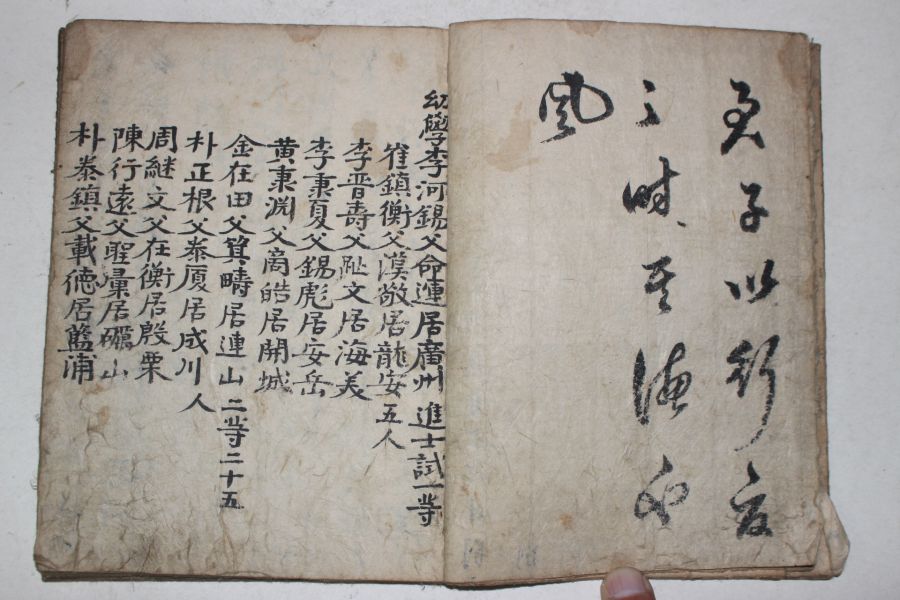 子以行
風
幼學李河錫父命運居廣州 進士試一等
崔鎮衡父漢敬居龍安 五人
李晋壽父趾文居海美
李秉夏父錫彪居安岳
黃秉淵父商皓居開城
金在田父箕疇居連山 二等二十五
朴正根父泰厦居成川 人
周継文父在衡居殷栗
陳行遠父聖彙居礪山
朴泰鎮父載徳居藍浦